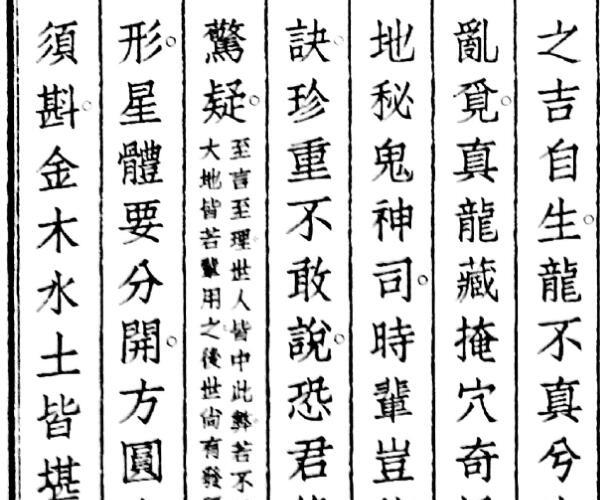 之吉自生龍不真兮
亂覓真龍藏掩穴奇
地秘鬼神司時輩豈
訣珍重不敢說恐君
驚疑至言至理世人皆中此弊若不
大地皆若輩用之後世尚有發
形星體要分開方圓
須斟金木水土皆堪